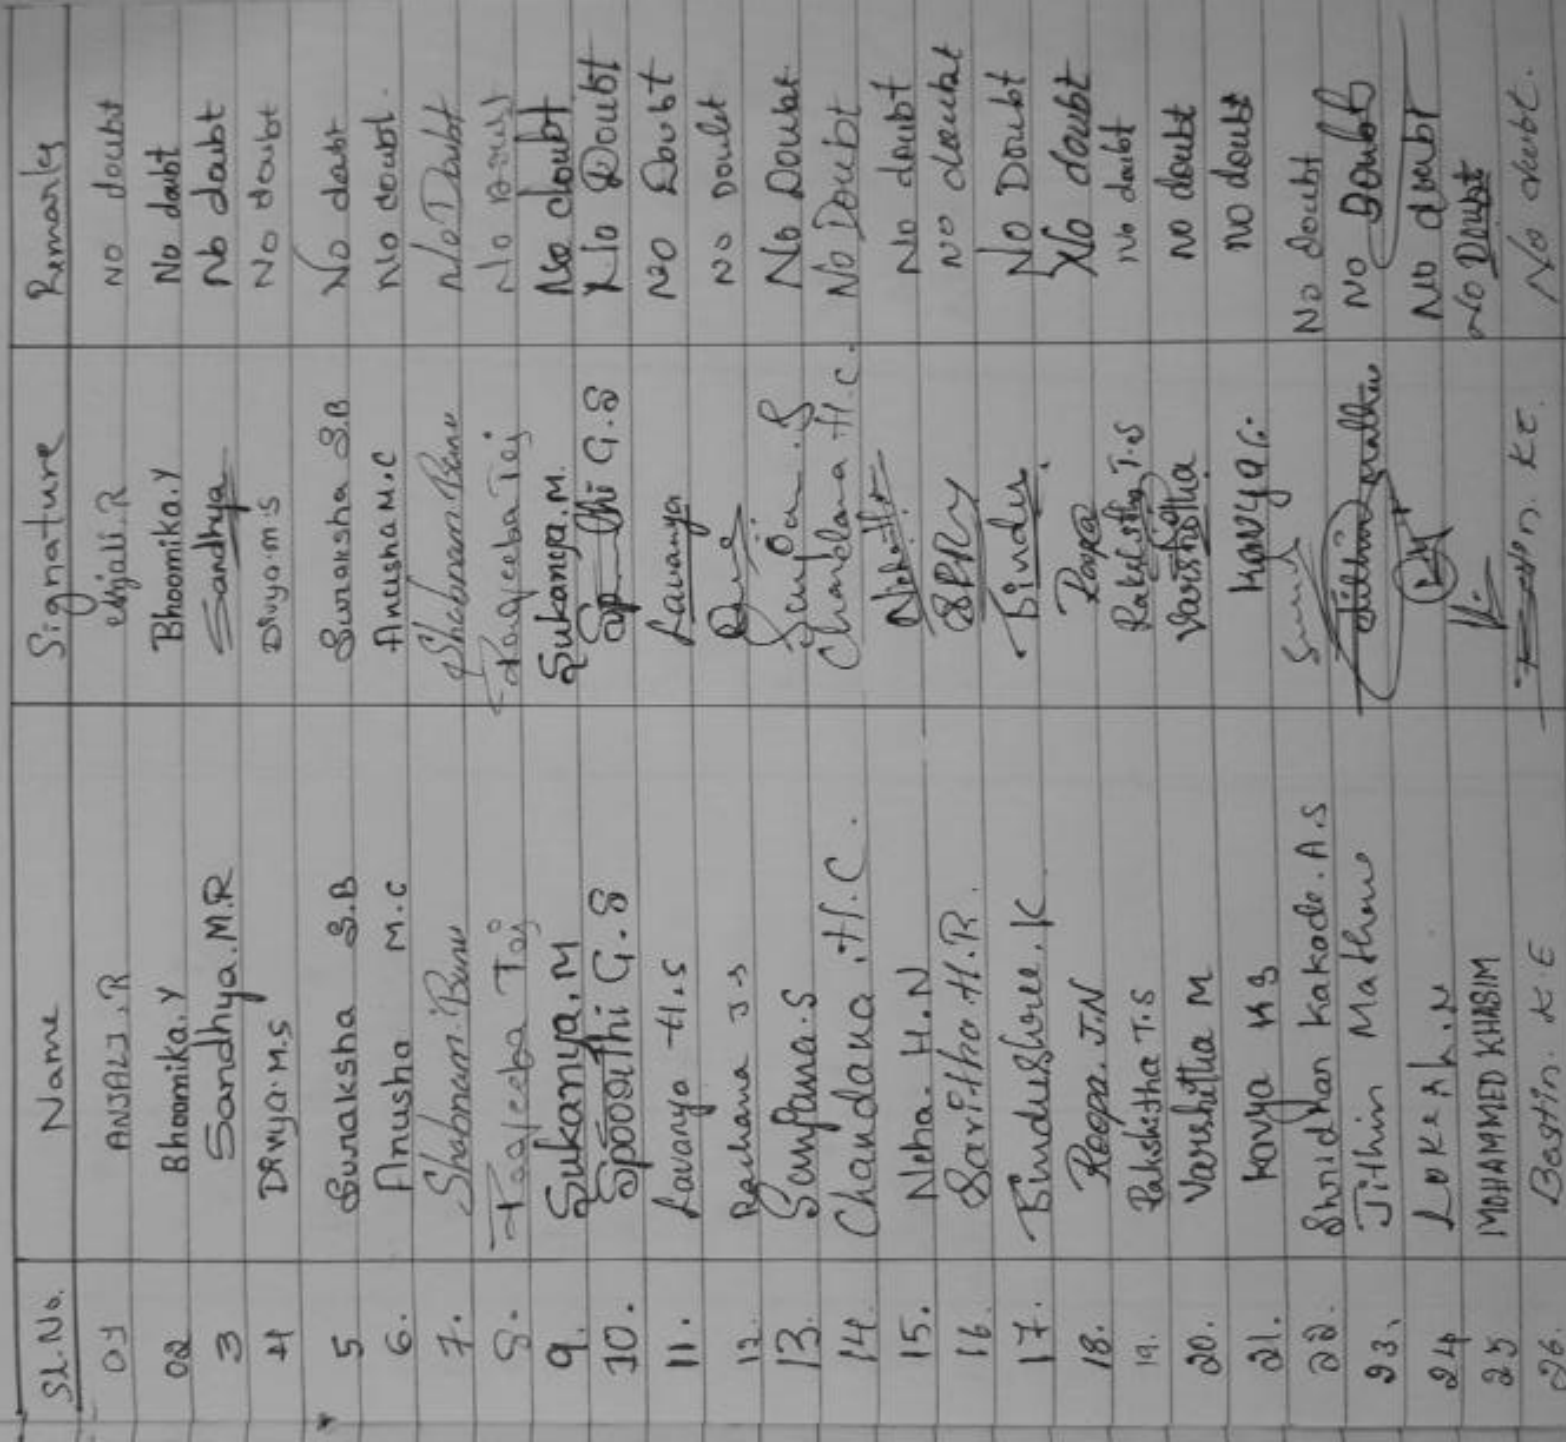 Sl.No. Name Signature Remarks
01 ANJALI.R Anjali.R No doubt
02 Bhoomika.Y Bhoomika.Y No doubt
3 Sandhya.M.R Sandhya No doubt
4 Divya.M.S Divya.m.s No doubt
5 Suraksha S.B Suraksha S.B No doubt
6. Anusha M.C Anusha M.C No doubt.
7. Shabnam Banu Shabnam Banu No Doubt
8. Taj No Doubt
9. Sukanya.M Sukanya.M. No doubt
10. Spoorthi G.S G.S No Doubt
11. Lavanya H.S Lavanya No Doubt
12. Rachana J.S No Doubt
13. Sanjana.S Sanjana.S No Doubt
14. Chandana.H.C. Chandana H.C. No Doubt
15. Neha.H.N No doubt
16. Saritha.H.R. No doubt
17. Bindushree.K Bindu. No Doubt
18. Roopa.J.N Roopa No doubt
19. Rakshitha T.S Rakshitha T.S No doubt
20. Varshitha M Varshitha no doubt
21. Kavya K S no doubt
22. Shridhar Kakade.A.S No doubt
23. Jithin Mathew Jithin mathew No Doubt
24 Lokesh.N No doubt
25 MOHAMMED KHASIM No Doubt
26. K E K E. No doubt.